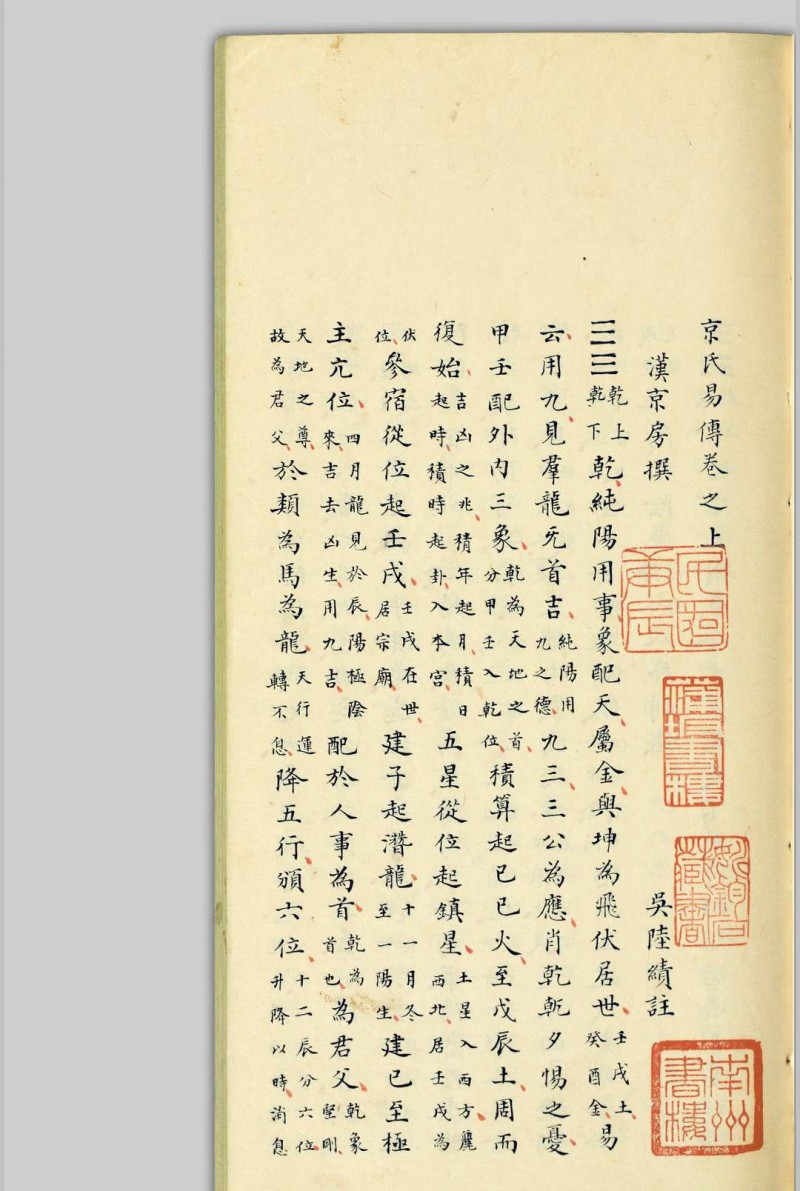 京氏易傳卷之上
漢京房撰　吳陸績註
☰☰乾上乾下乾純陽用事象配天屬金與坤為飛伏居世壬戌土癸酉金易
云用九見羣龍无首吉純陽用九之德九三三公為應肖乾乾夕惕之憂
甲壬配外内三象乾為天地之首分甲壬入乾位積算起己巳火至戊辰土周而
復始吉凶之兆積年起月積日起時積時起卦入本宮五星從位起鎮星土星入西方麗西北居壬戌為
伏位參宿從位起壬戌壬戌在世居宗廟建子起潛龍十一月冬至一陽生建巳至極
主亢位四月龍見於辰陽極陰來吉去凶生用九吉配於人事為首乾為首也為君父乾象堅剛
天地之尊故為君父於類為馬為龍天行運轉不息降五行頒六位十二辰分六位升降以時消息
民國庚辰
蒲坂書樓
南州書樓